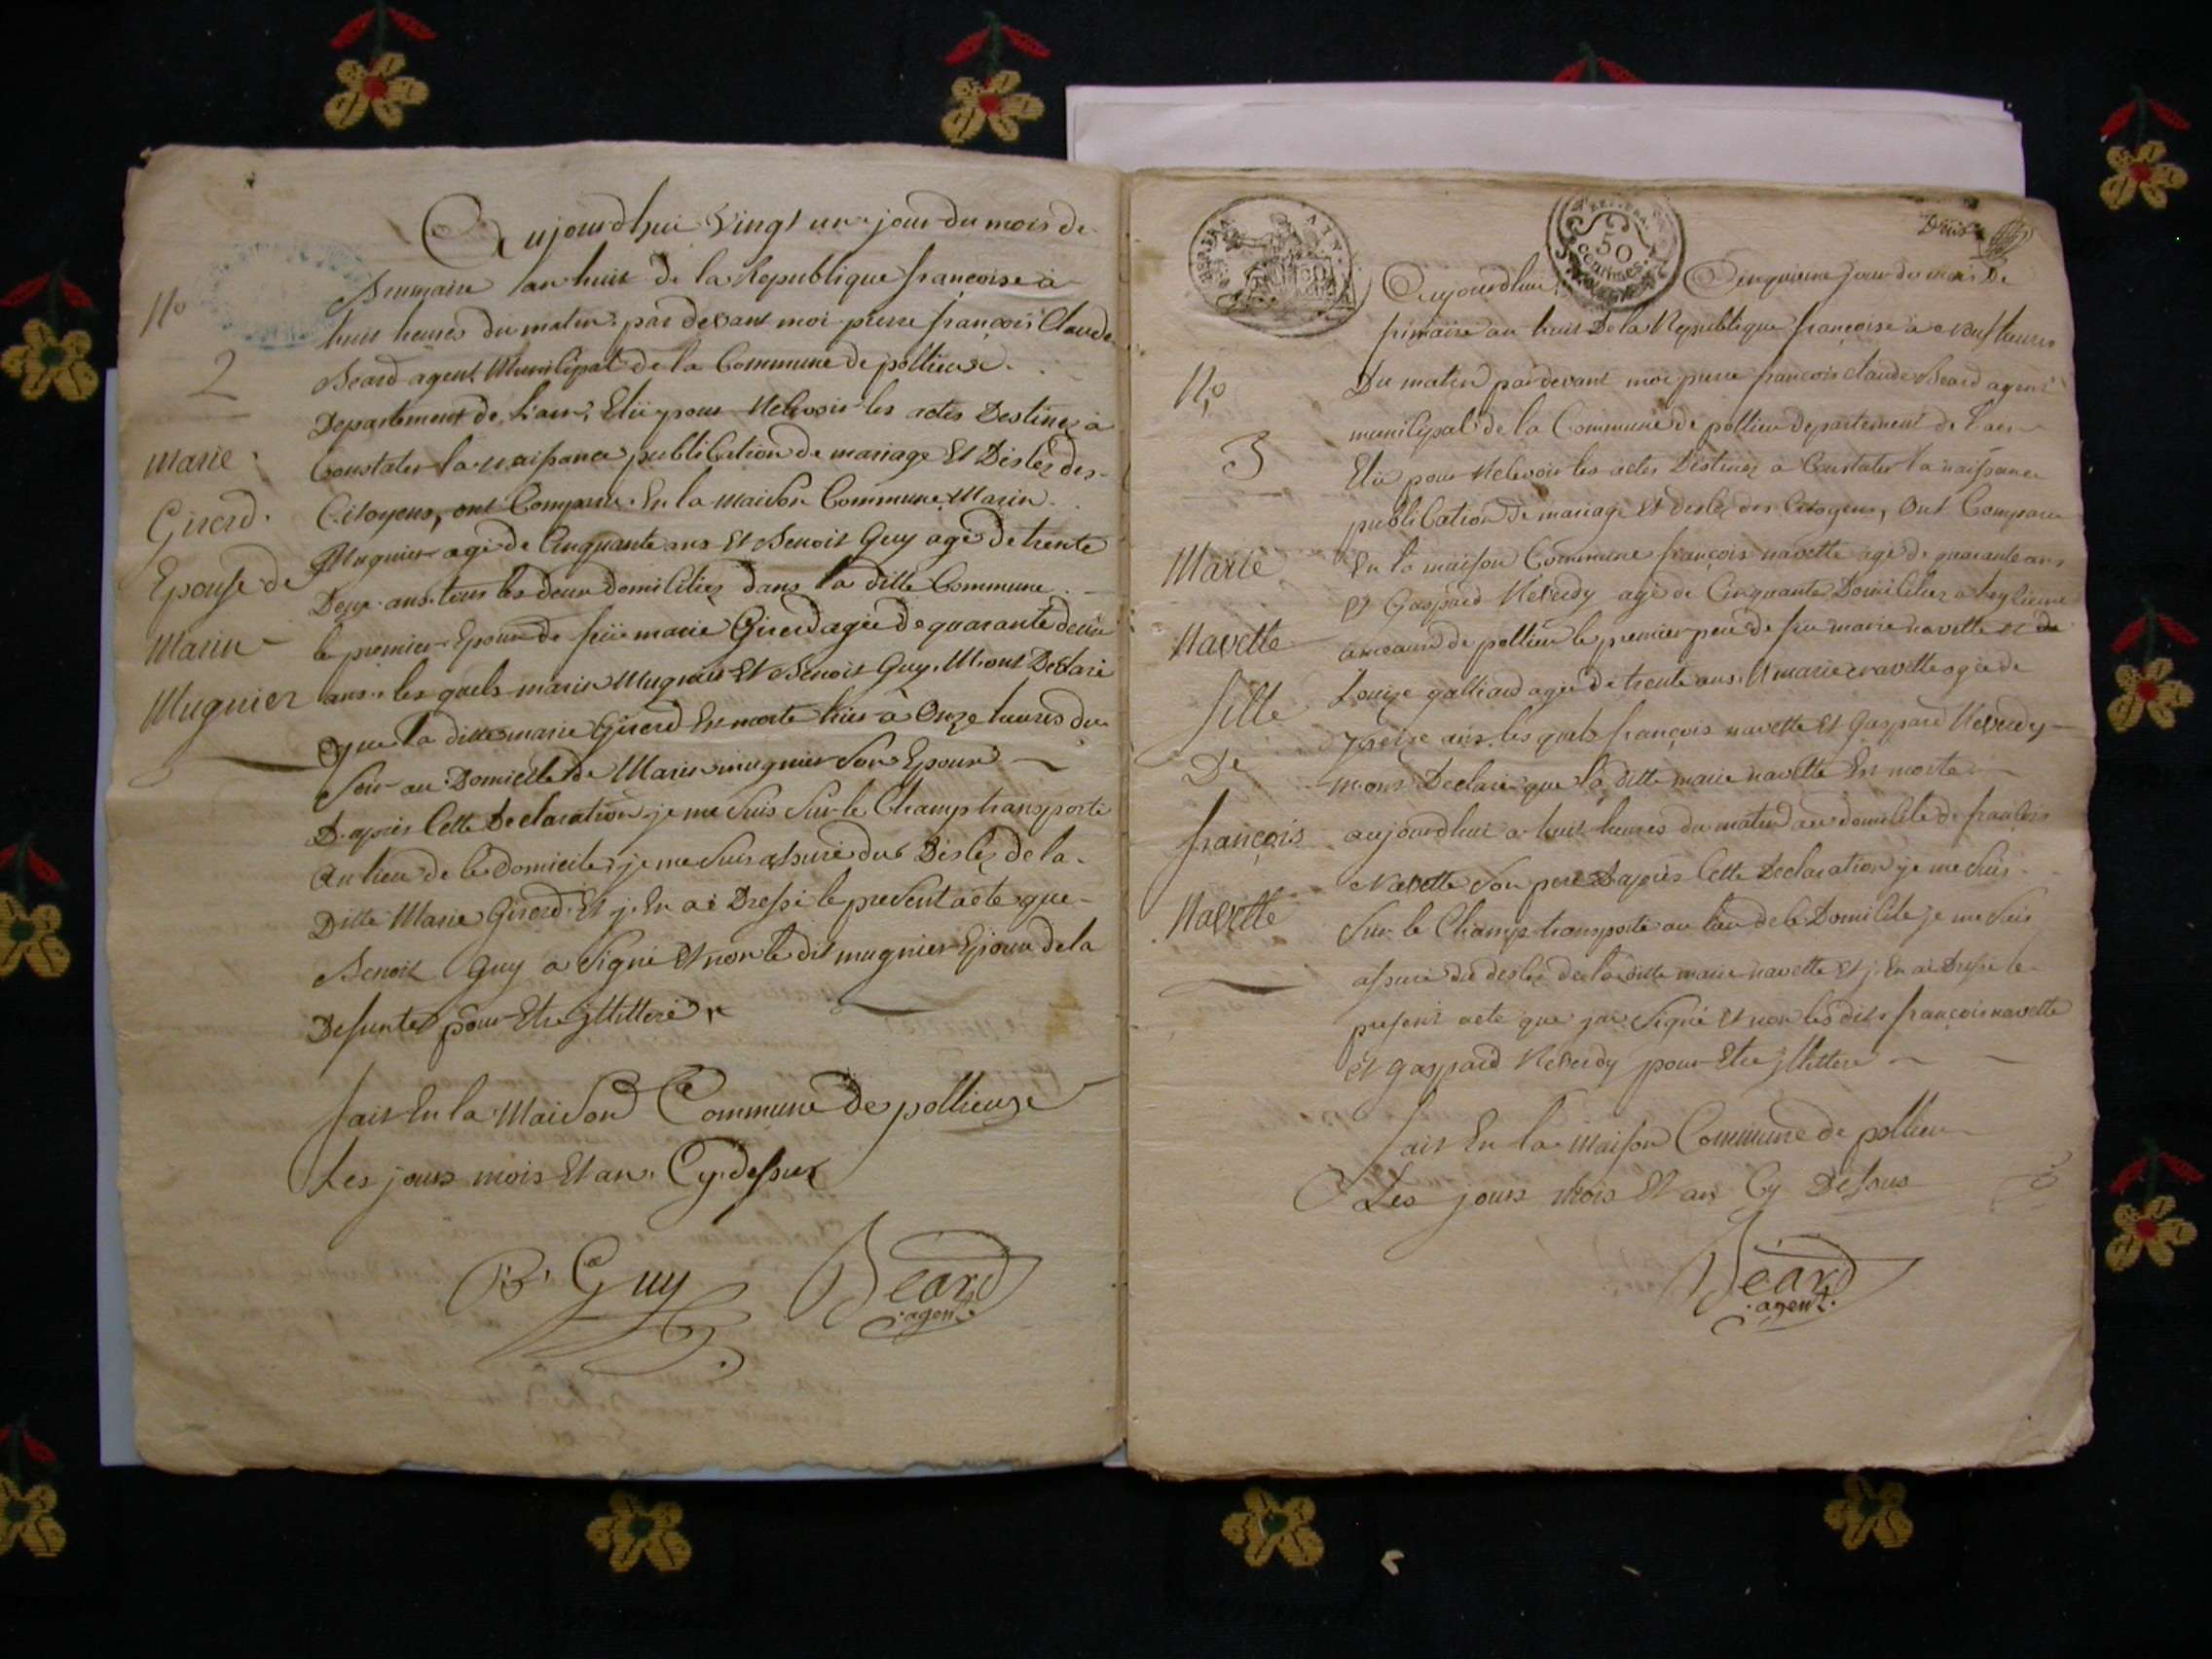 Aujourdhui vingt un jour du mois de
Brumaire an huit de la Republique françoise à
huit heures du matin par devant moi pierre françois Claude
Beard agent Municipal de la Commune de pollieux
Departement de l'ain, Elü pour Recevoir les actes Destinez à
Constater la naissance publication de mariage Et Desles des
Citoyens, ont Comparu En la maison Commune Marin
Mugnier agé de Cinquante ans Et Benoit Guy agé de trente
Deux ans tous les deux domiciliez dans la ditte Commune
le premier Epoux de feüe marie Girerd agée de quarante deux
ans. les quels marin Mugnier Et Benoit Guy M'ont Declaré
que la ditte marie Girerd Est morte hier à Onze heures du
Soir au Domicile de Marin mugnier Son Epoux
D'après Cette Declaration je me suis Sur le Champ transporté
Au lieu de Ce Domicile, je me suis assuré du Desles de la
Ditte Marie Girerd. Et j'En ai Dressé le present acte que
Benoit Guy a Signé Et non le dit mugnier Epoux de la
Defunte pour Etre jllitteré
fait En la Maison Commune de pollieux
Les jours mois Et an Cy dessus
B. Guy Béard
agent.
No
2
Marie
Girerd
Epouse de
Marin
Mugnier
50
Centimes
Aujourdhui Cinquieme jour du mois De
frimaire an huit De la Republique françoise à neuf heures
Du matin par devant moi pierre françois Claude Beard agent
municipal de la Commune de pollieu departement de l'ain
Elü pour Recevoir les actes Destinez a Constater la naissance
publication de mariage Et desles des Citoyens, Ont Comparu
En la maison Commune françois navette agé de quarante ans
Et Gaspard Reverdy agé de Cinquante Domiciliez a
de pollieu le premier pere de feu marie navette et de
Louize galliard agée de trente ans. marie navette agée de
ans. les quels françois navette Et Gaspard Reverdy
m'ont Declaré que la ditte marie navette Est morte
aujourdhui a huit heures du matin au domicile de françois
Navette Son pere D'après Cette Declaration je me suis
Sur le Champ transporté au lieu de Ce Domicile je me suis
assuré du desles de la ditte marie navette Et j'En ai Dressé le
present acte que j'ai Signé Et non les dits françois navette
Et gaspard Reverdy pour Etre jllitteré
fait En la maison Commune de pollieu
Les jours mois Et an Cy Dessus
Béard
agent.
No
3
Marie
Navette
fille
De
françois
Navette